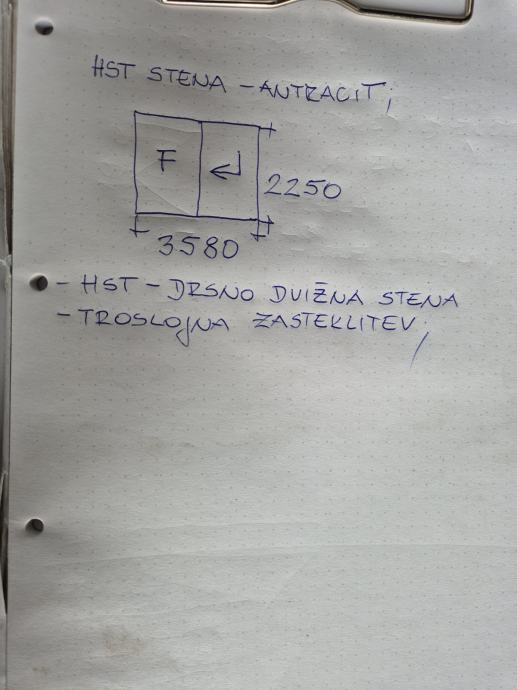 HST STENA - ANTRACIT;
F
2250
3580
- HST - DRSNO DVIŽNA STENA
- TROSLOJNA ZASTEKLITEV;